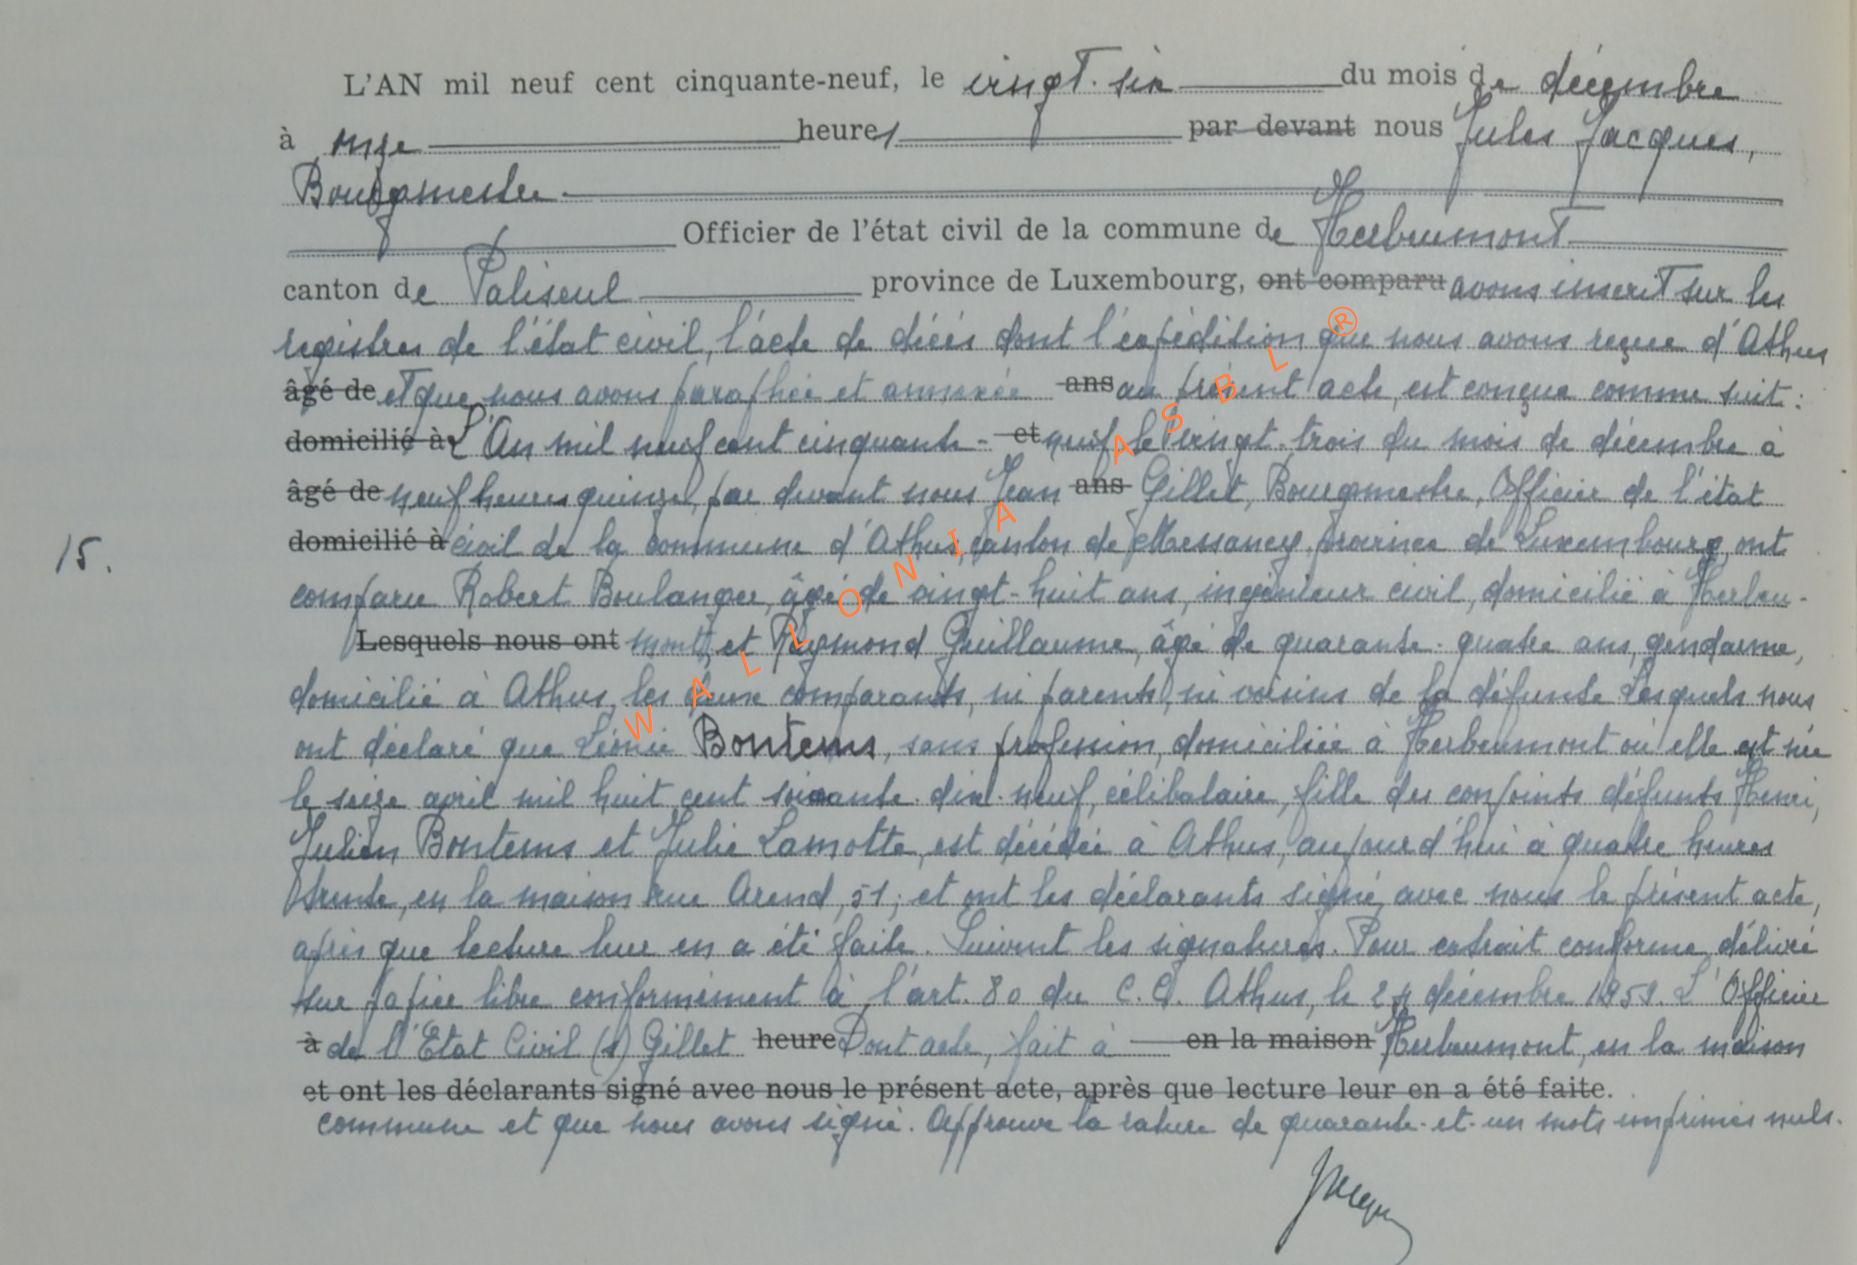 L'AN mil neuf cent cinquante-neuf, le vingt-six du mois de décembre
à onze heures par devant nous Jules Jacques,
Bourgmestre
Officier de l'état civil de la commune de Herbeumont
canton de Paliseul province de Luxembourg, ont comparu avons inscrit sur les
registres de l'état civil, l'acte de décès dont l'expédition que nous avons reçue d'Athus
âgé de et que nous avons paraphée et annexée ans au présent acte, est conçue comme suit :
domicilié à L'An mil neuf cent cinquante- et neuf, le vingt-trois du mois de décembre à
âgé de neuf heures quinze, par devant nous Jean ans Gillet, Bourgmestre, Officier de l'état
domicilié à civil de la commune d'Athus, canton de Messancy, province de Luxembourg, ont
15.
comparu Robert Boulanger, âgé de vingt-huit ans, ingénieur civil, domicilié à Herbeu-
Lesquels nous ont mont, et Raymond Guillaume, âgé de quarante-quatre ans, gendarme,
domicilié à Athus, les deux comparants, ni parents, ni voisins de la défunte Lesquels nous
ont déclaré que Léonie Bontems, sans profession, domiciliée à Herbeumont où elle est née
le seize avril mil huit cent soixante-dix-neuf, célibataire, fille des conjoints défunts Henri,
Julien Bontems et Julie Lamotte, est décédée à Athus, aujourd'hui à quatre heures
trente, en la maison rue Arend, 51; et ont les déclarants signé avec nous le présent acte,
après que lecture leur en a été faite. Suivent les signatures. Pour extrait conforme, délivré
sur papier libre conformément à l'art. 80 du C.C. Athus, le 24 décembre 1959. L'Officier
à de l'Etat Civil (s) Gillet heure Dont acte, fait à en la maison Herbeumont, en la maison
et ont les déclarants signé avec nous le présent acte, après que lecture leur en a été faite.
commune et que nous avons signé. Approuvé la rature de quarante-et-un mots imprimés nuls.
Jacques
WALLONIA ASBL ®